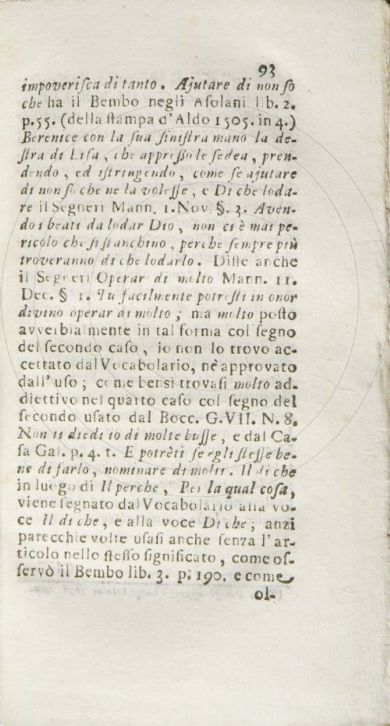 93
impoverisca di tanto. Ajutare di non so
che ha il Bembo negli Asolani lib. 2.
p. 55. (della stampa d'Aldo 1505. in 4.)
Berenice con la sua sinistra mano la de-
stra di Lisa, che appresso le sedea, pren-
dendo, ed istringendo, come se ajutare
di non so che ne la volesse, e Di che loda-
re il Segneri Mann. 1. Nov. §. 3. Aven-
do i beati da lodar Dio, non ci è mai pe-
ricolo che si stanchino, perche sempre più
troveranno di che lodarlo. Disse anche
il Segneri Operar di molto Mann. 11.
Dec. § 1. Tu facilmente potresti in onor
divino operar di molto; ma molto posto
avverbialmente in tal forma col segno
del secondo caso, io non lo trovo ac-
cettato dal Vocabolario, nè approvato
dall'uso; come bensi trovasi molto ad-
diettivo nel quarto caso col segno del
secondo usato dal Bocc. G. VII. N. 8.
Non ti diedi io di molte busse, e dal Ca-
sa Gal. p. 4. t. E potrèti se egli stesse be-
ne di farlo, nominare di molti. Il di che
in luogo di Il perche, Per la qual cosa,
viene segnato dal Vocabolario alla vo-
ce Il di che, e alla voce Di che; anzi
parecchie volte usasi anche senza l'ar-
ticolo nello stesso significato, come os-
servò il Bembo lib. 3. p. 190. e come
ol-